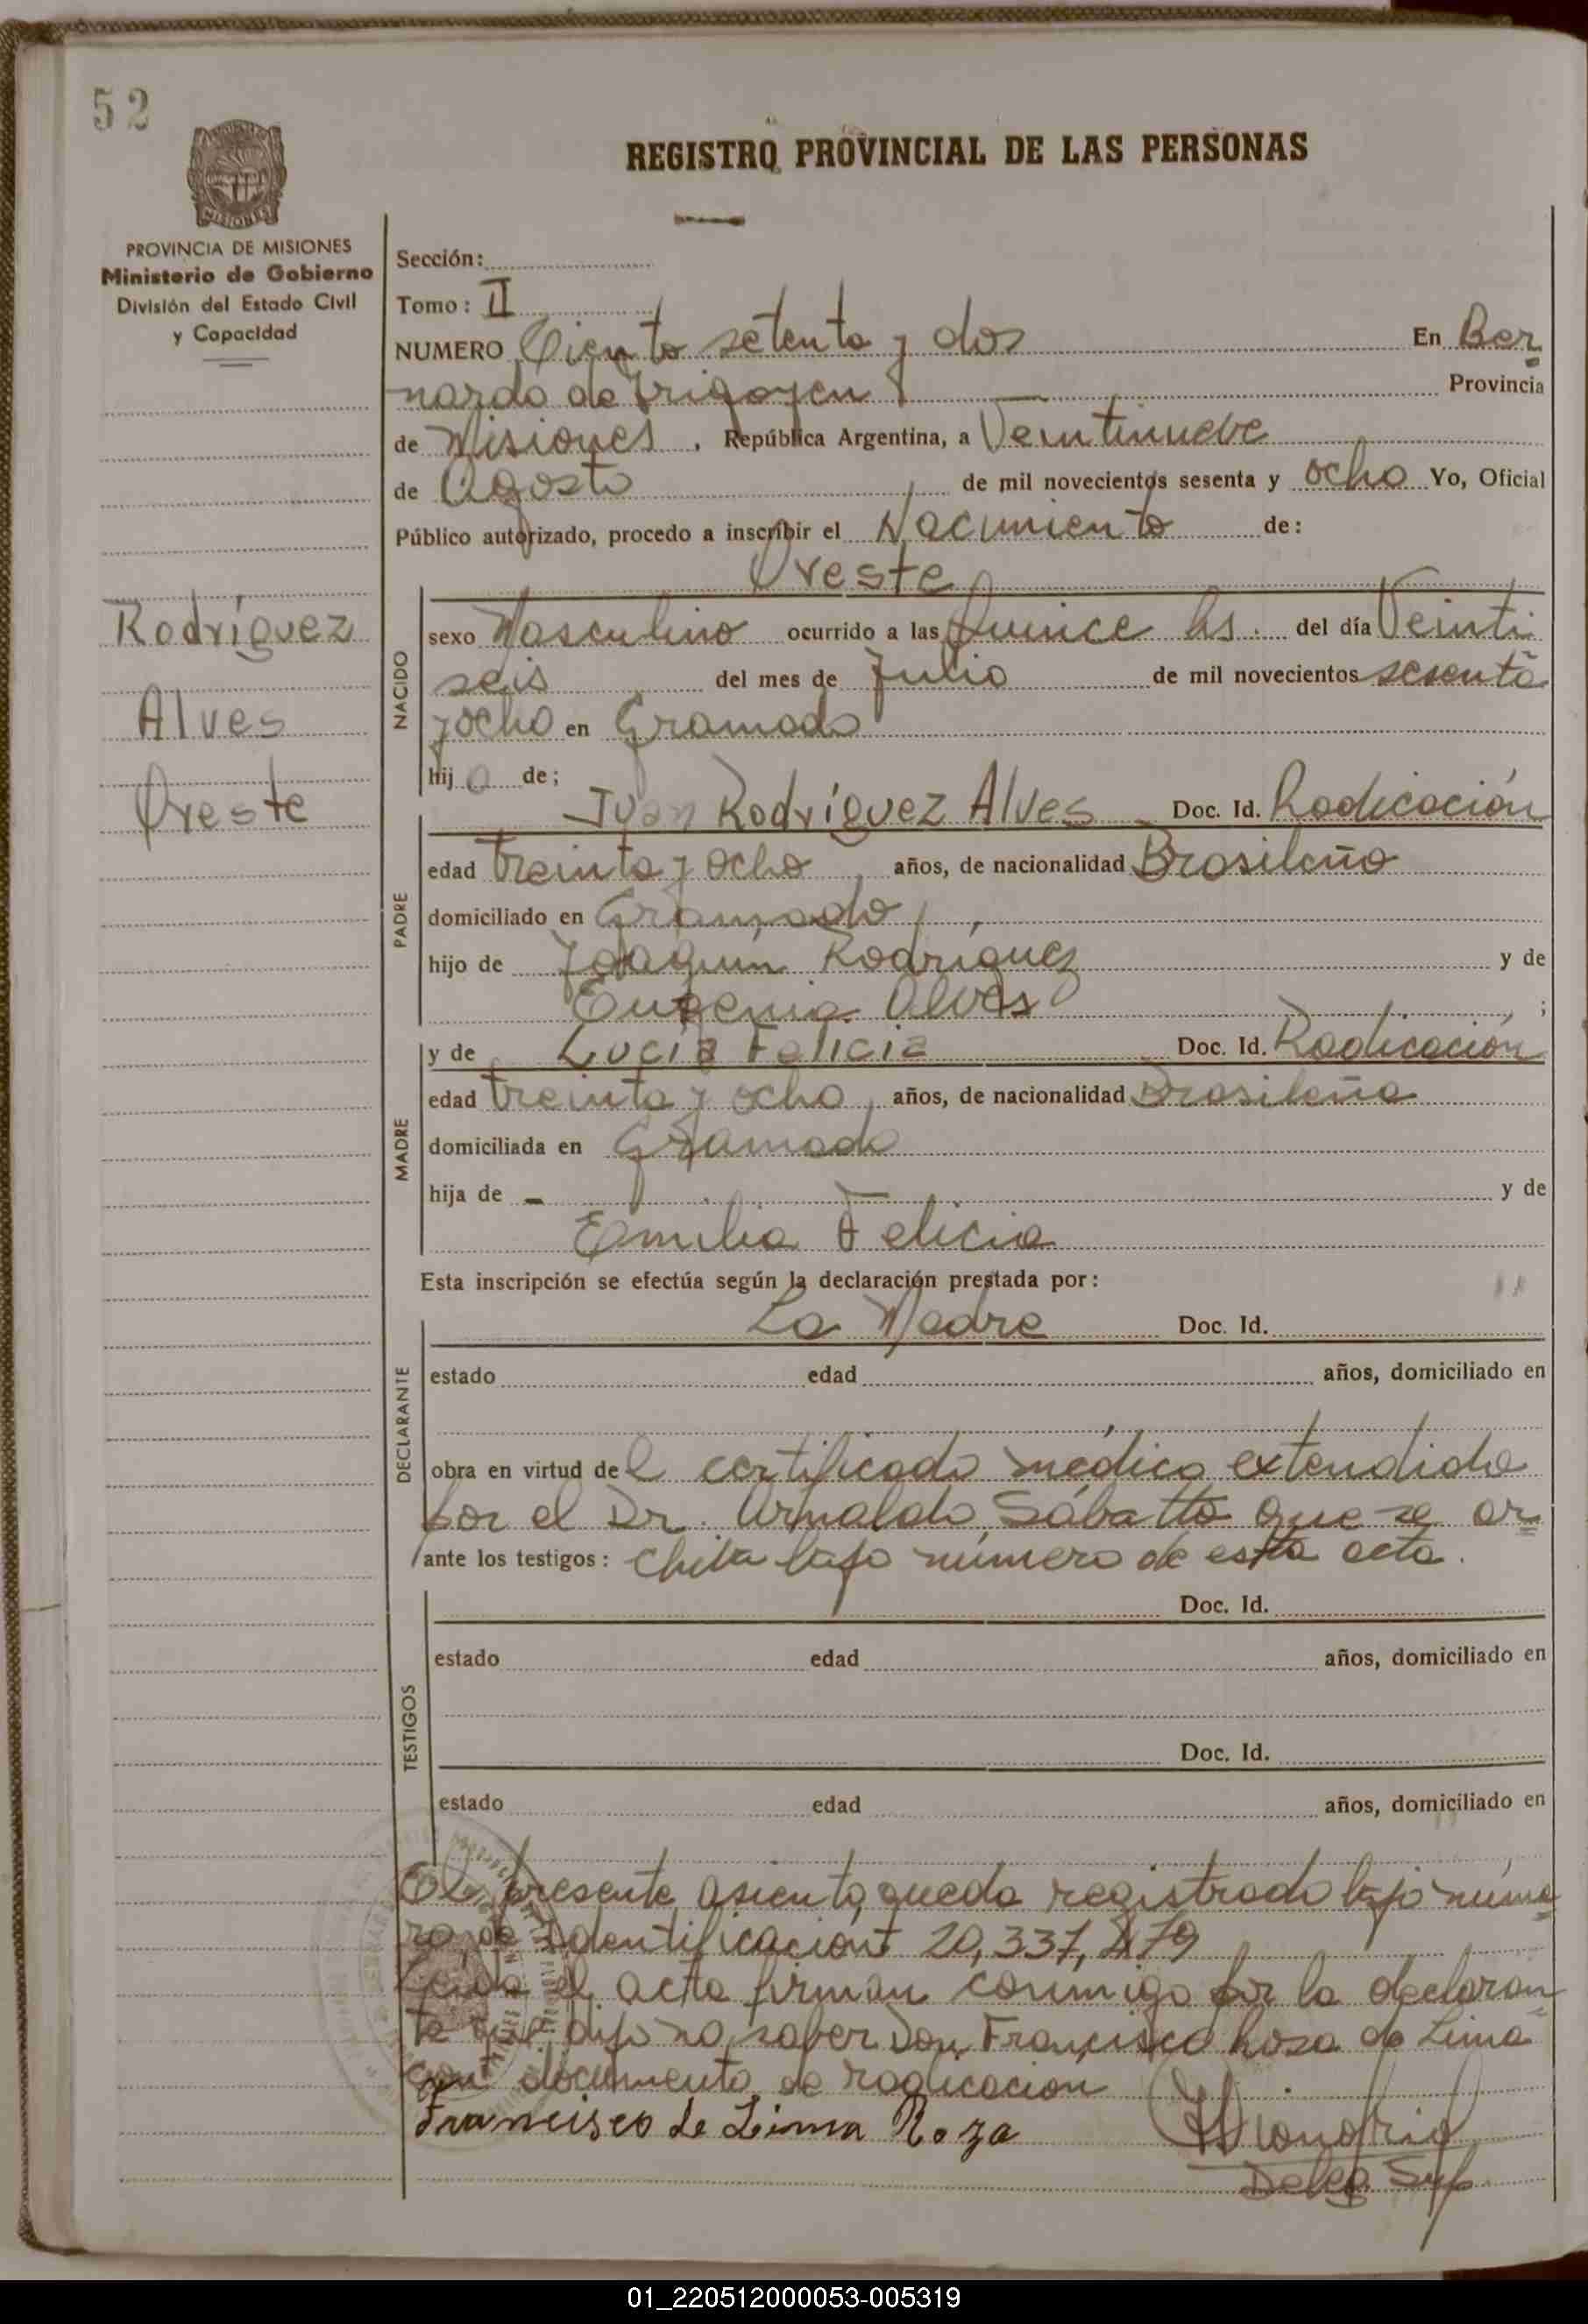 52
REGISTRO PROVINCIAL DE LAS PERSONAS
MISIONES
PROVINCIA DE MISIONES
Ministerio de Gobierno
División del Estado Civil
y Capacidad
Sección:
Tomo: II
NUMERO Ciento setenta y dos En Ber
nardo de Irigoyen Provincia
de Misiones, República Argentina, a Veintinueve
de Agosto de mil novecientos sesenta y ocho Yo, Oficial
Público autorizado, procedo a inscribir el Nacimiento de:
Oreste
Rodríguez
Alves
Oreste
NACIDO
sexo Masculino ocurrido a las Quince hs. del día Veinti
seis del mes de Julio de mil novecientos sesenta
y ocho en Gramado
hijo de;
PADRE
Juan Rodríguez Alves Doc. Id. Radicación
edad treinta y ocho años, de nacionalidad Brasileño
domiciliado en Gramado
hijo de Joaquín Rodríguez y de
Eugenia Alves ;
MADRE
y de Lucia Felicia Doc. Id. Radicación
edad treinta y ocho años, de nacionalidad Brasileña
domiciliada en Gramado
hija de - y de
Emilia Felicia
Esta inscripción se efectúa según la declaración prestada por:
DECLARANTE
La Madre Doc. Id.
estado edad años, domiciliado en
obra en virtud del certificado médico extendido
por el Dr. Arnaldo Sábatto que se ar
ante los testigos: chiva bajo número de esta acta.
TESTIGOS
Doc. Id.
estado edad años, domiciliado en
Doc. Id.
estado edad años, domiciliado en
El presente asiento queda registrado bajo núme
ro de identificación 20,337,479
Leída el acta firman conmigo por la declaran
te que dijo no saber Don Francisco Roza de Lima
con documento de radicación
Francisco de Lima Roza
Deleg. Sup.
01_220512000053-005319